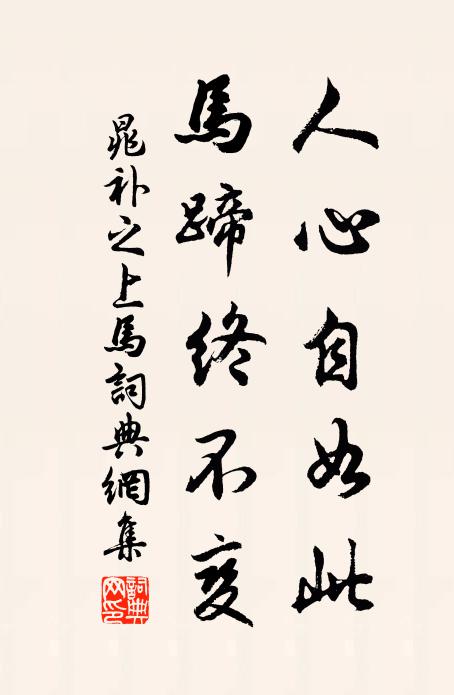 人心自如此
馬蹄終不変
晁补之上馬詞典網集
詞典网印